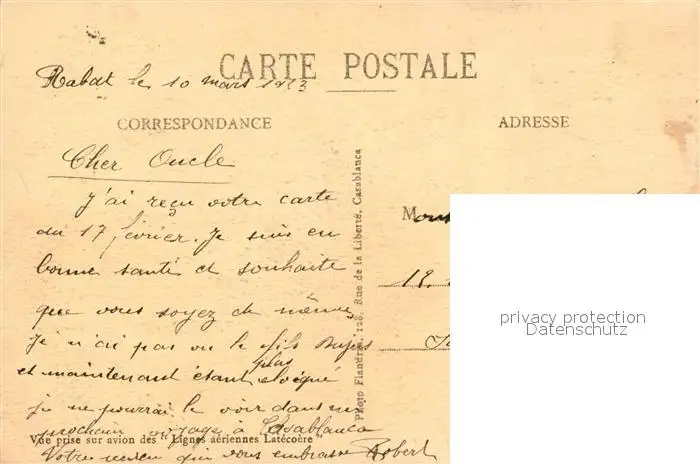 CARTE POSTALE
Rabat le 10 mars 1923
CORRESPONDANCE
ADRESSE
Cher Oncle
J'ai reçu votre carte
du 17 février. Je suis en
bonne santé et souhaite
que vous soyez de même
Je n'ai pas vu le fils
et maintenant étant plus eloigné
je ne pourrai le voir dans un
prochain voyage à Casablanca
Vue prise sur avion des "Lignes aériennes Latécoère"
Votre neveu qui vous embrasse Robert
Photo Flandrin, 128, Rue de la Liberté, Casablanca
19.
privacy protection
Datenschutz